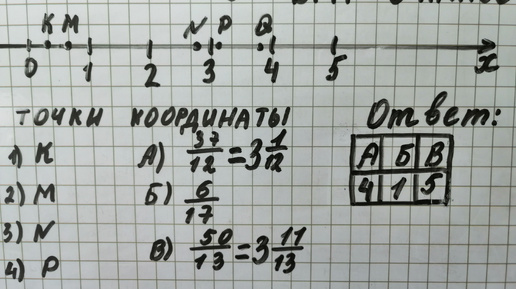 K M N P Q
0 1 2 3 4 5 x
ТОЧКИ КООРДИНАТЫ Ответ:
1) K А) 37/12 = 3 1/12
2) M Б) 6/17
3) N В) 50/13 = 3 11/13
4) P
А Б В
4 1 5